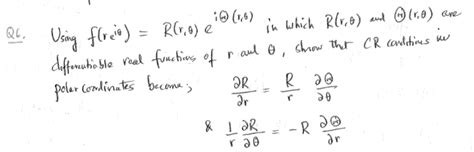 Q6. Using f(re^{iθ}) = R(r,θ) e^{iΘ(r,θ)} in which R(r,θ) and Θ(r,θ) are
differentiable real functions of r and θ, show that CR conditions in
polar coordinates become;
∂R/∂r = R/r ∂Θ/∂θ
& 1/r ∂R/∂θ = -R ∂Θ/∂r